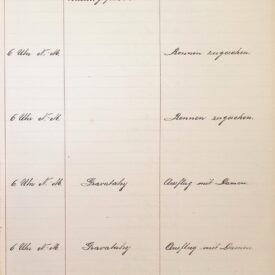 6 Uhr N. M. Rennen zugesehen.
6 Uhr N. M. Rennen zugesehen.
6 Uhr N. M. Gravatahy Ausflug mit Damen.
6 Uhr N. M. Gravatahy Ausflug mit Damen.